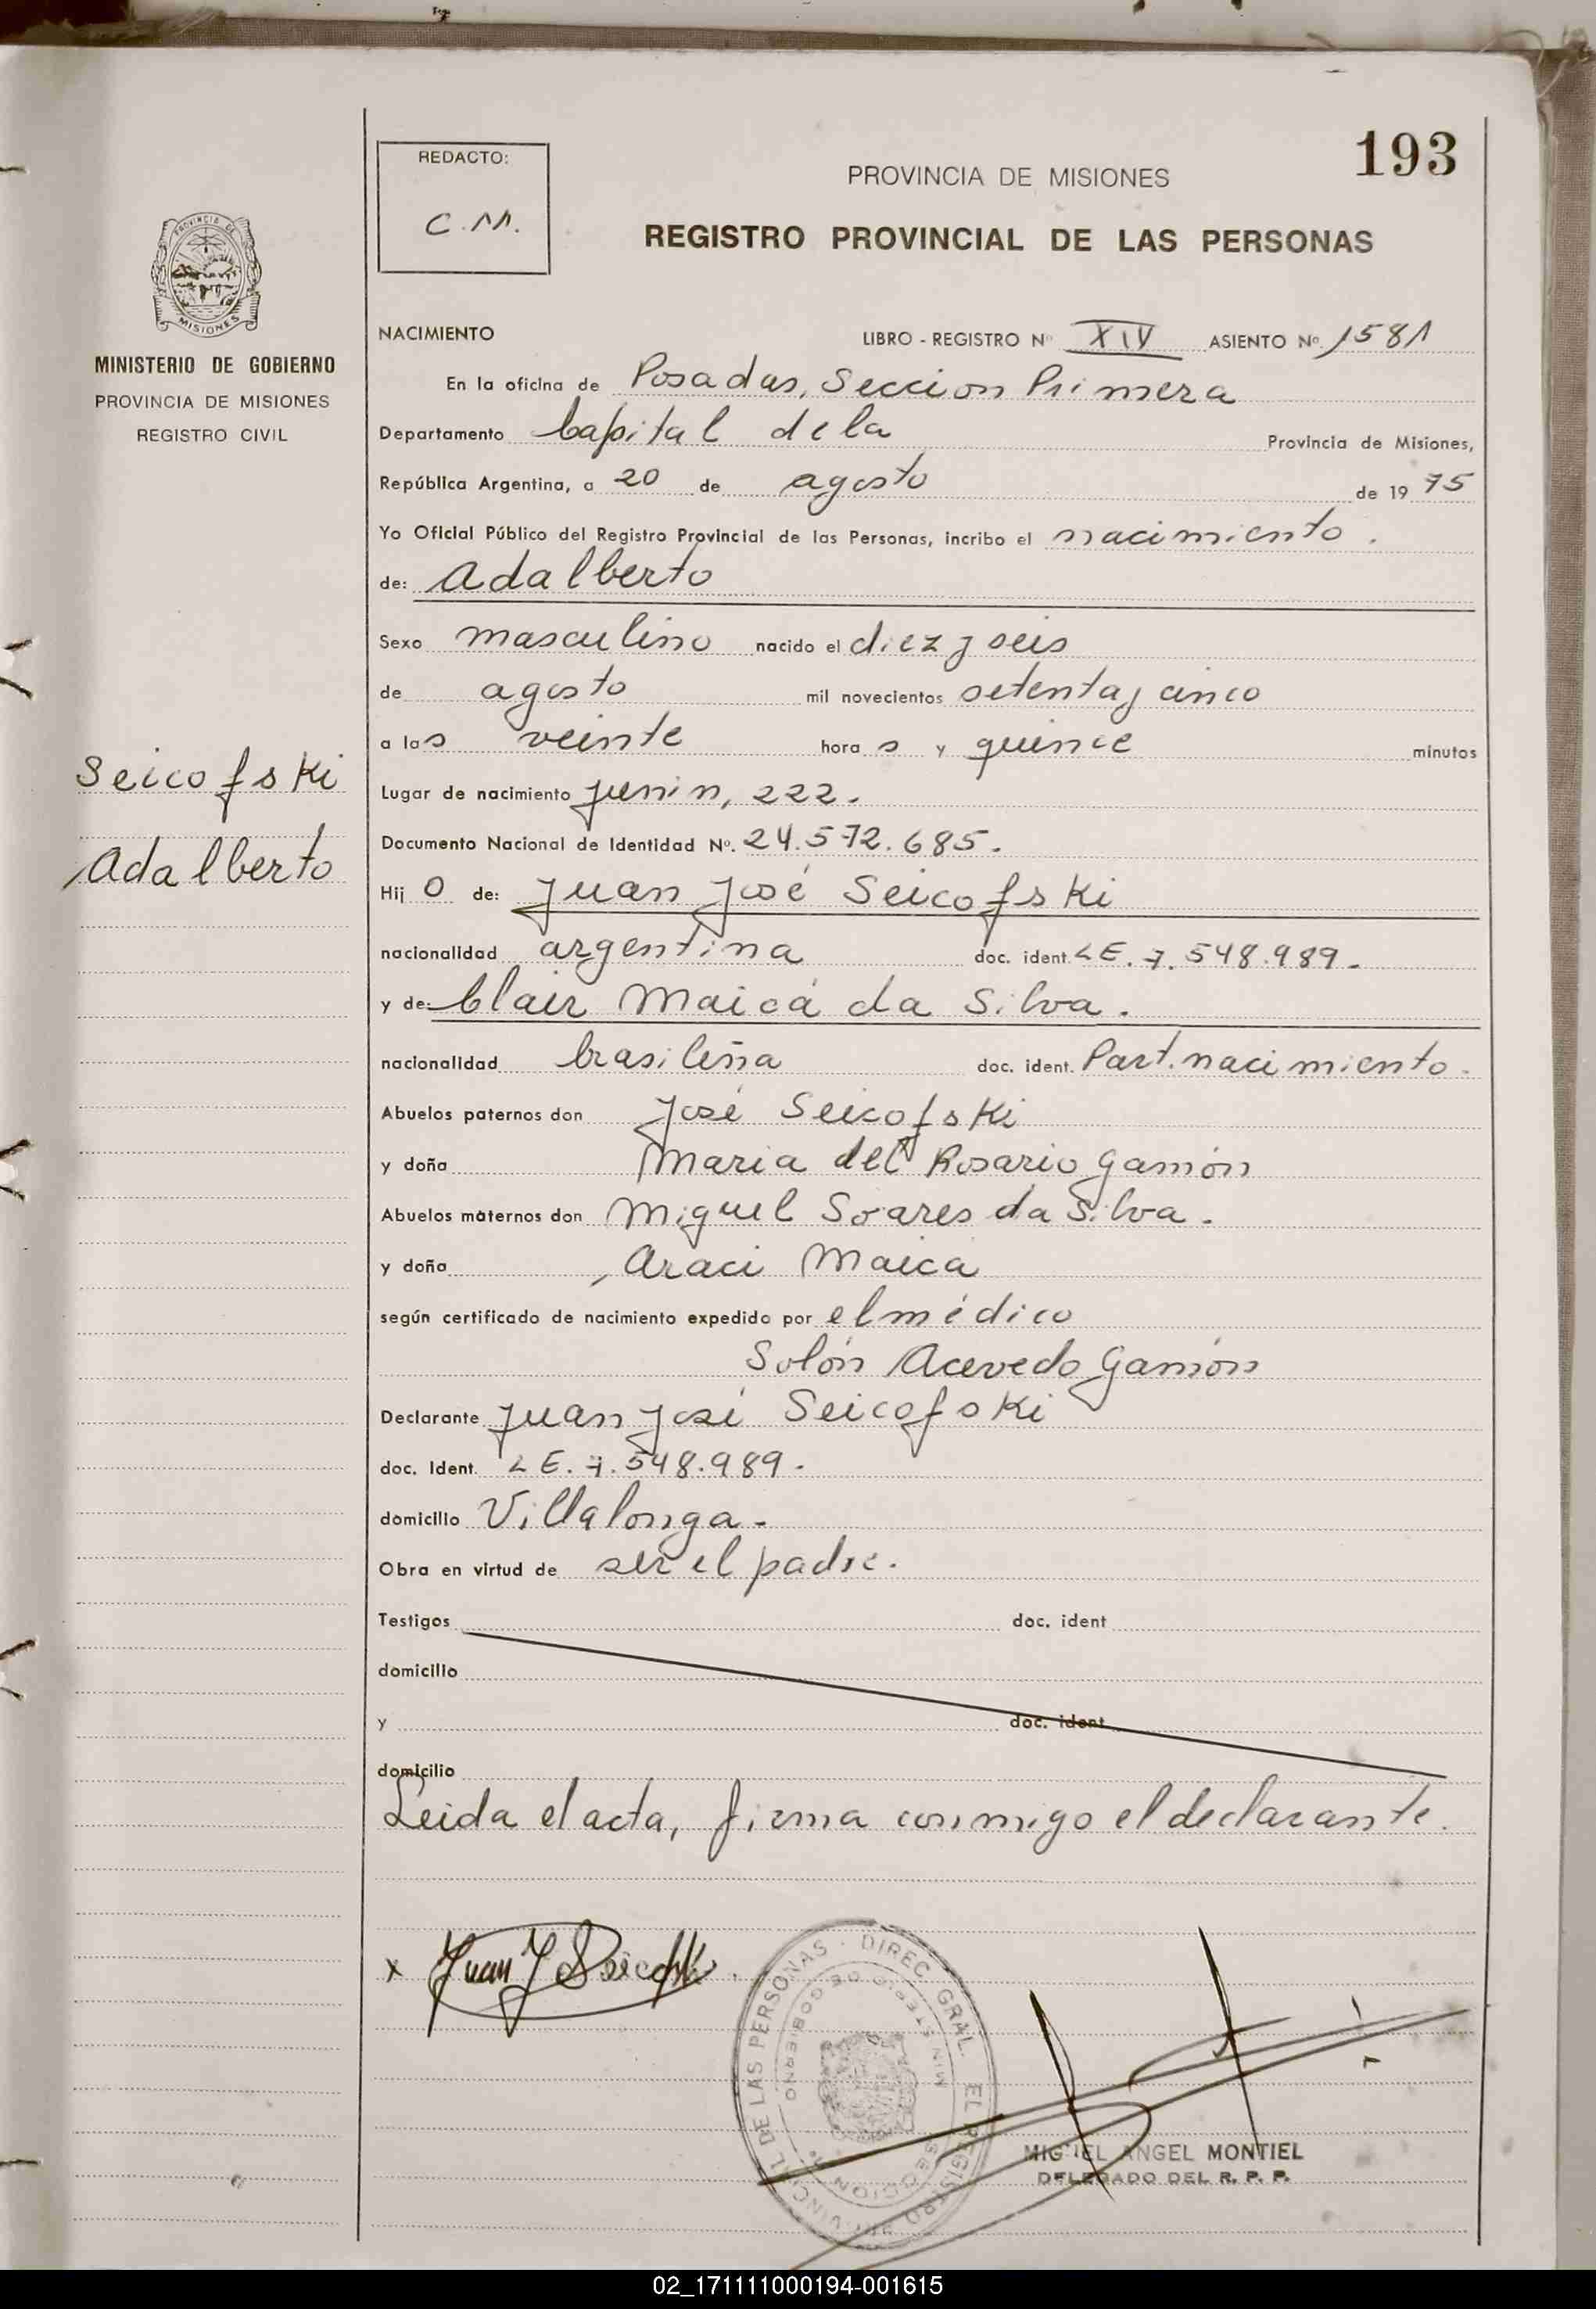 193
REDACTO:
C.M.
PROVINCIA DE MISIONES
REGISTRO PROVINCIAL DE LAS PERSONAS
PROVINCIA DE
MISIONES
MINISTERIO DE GOBIERNO
PROVINCIA DE MISIONES
REGISTRO CIVIL
NACIMIENTO LIBRO - REGISTRO Nº XIV ASIENTO Nº 1581
En la oficina de Posadas, Seccion Primera
Departamento Capital de la Provincia de Misiones,
República Argentina, a 20 de agosto de 19 75
Yo Oficial Público del Registro Provincial de las Personas, incribo el nacimiento.
de: Adalberto
Sexo masculino nacido el diez y seis
de agosto mil novecientos setenta y cinco
a las veinte hora s y quince minutos
Seicofski
Adalberto
Lugar de nacimiento Junin, 222.
Documento Nacional de Identidad Nº. 24.572.685.
Hij o de: Juan José Seicofski
nacionalidad argentina doc. ident. LE. 7.548.989.
y de: Clair Maicá da Silva.
nacionalidad brasileña doc. ident. Part. nacimiento.
Abuelos paternos don José Seicofski
y doña Maria del Rosario Gamón
Abuelos maternos don Miguel Soares da Silva.
y doña Araci Maica
según certificado de nacimiento expedido por el médico
Solón Acevedo Gamón
Declarante Juan José Seicofski
doc. Ident. LE. 7.548.989.
domicilio Villalonga.
Obra en virtud de ser el padre.
Testigos doc. ident
domicilio
y doc. ident
domicilio
Leida el acta, firma conmigo el declarante.
x Juan J Seicofski
DIREC. GRAL. EL REGISTRO PROVINCIAL DE LAS PERSONAS
MINISTERIO DE GOBIERNO
SECCION
MIGUEL ANGEL MONTIEL
DELEGADO DEL R. P. P.
02_171111000194-001615